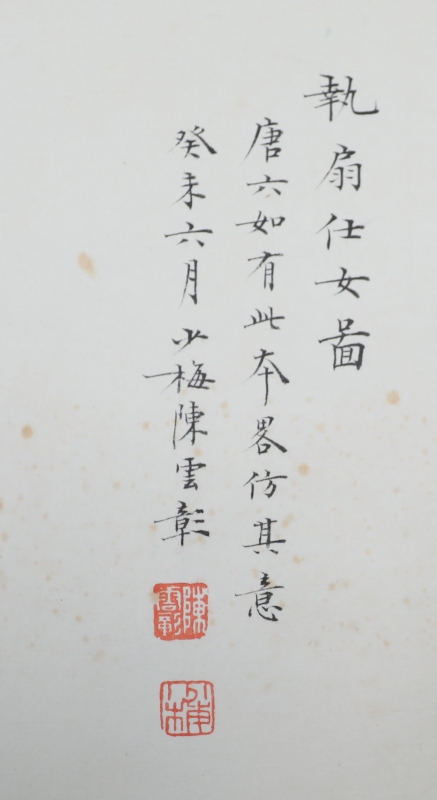 執扇仕女啚
唐六如有此本畧仿其意
癸未六月少梅陳雲彰
陳雲彰
少梅